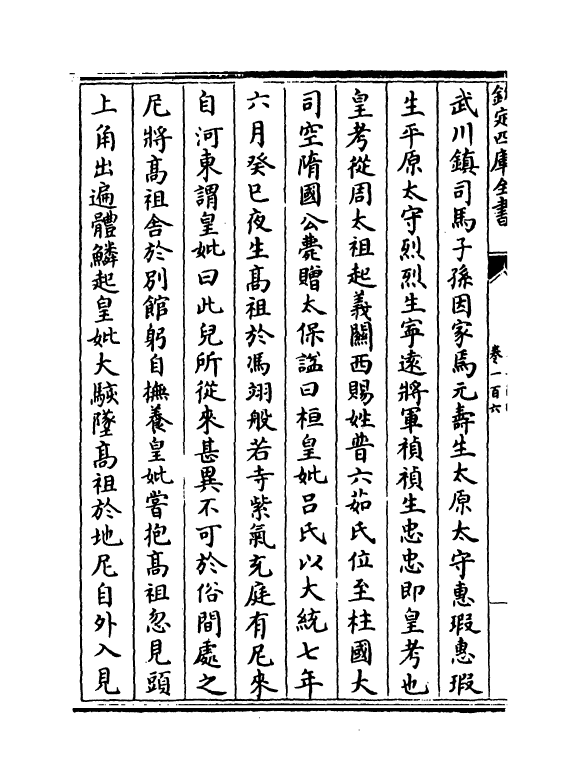 欽定四庫全書
卷一百六
武川鎮司馬子孫因家焉元壽生太原太守惠瑕惠瑕
生平原太守烈烈生寧遠將軍禎禎生忠忠即皇考也
皇考從周太祖起義關西賜姓普六茹氏位至柱國大
司空隋國公薨贈太保諡曰桓皇妣吕氏以大統七年
六月癸巳夜生髙祖於馮翊般若寺紫氣充庭有尼來
自河東謂皇妣曰此兒所從來甚異不可於俗間處之
尼將髙祖舎於別館躬自撫養皇妣嘗抱髙祖忽見頭
上角出遍體鱗起皇妣大駭墜髙祖於地尼自外入見